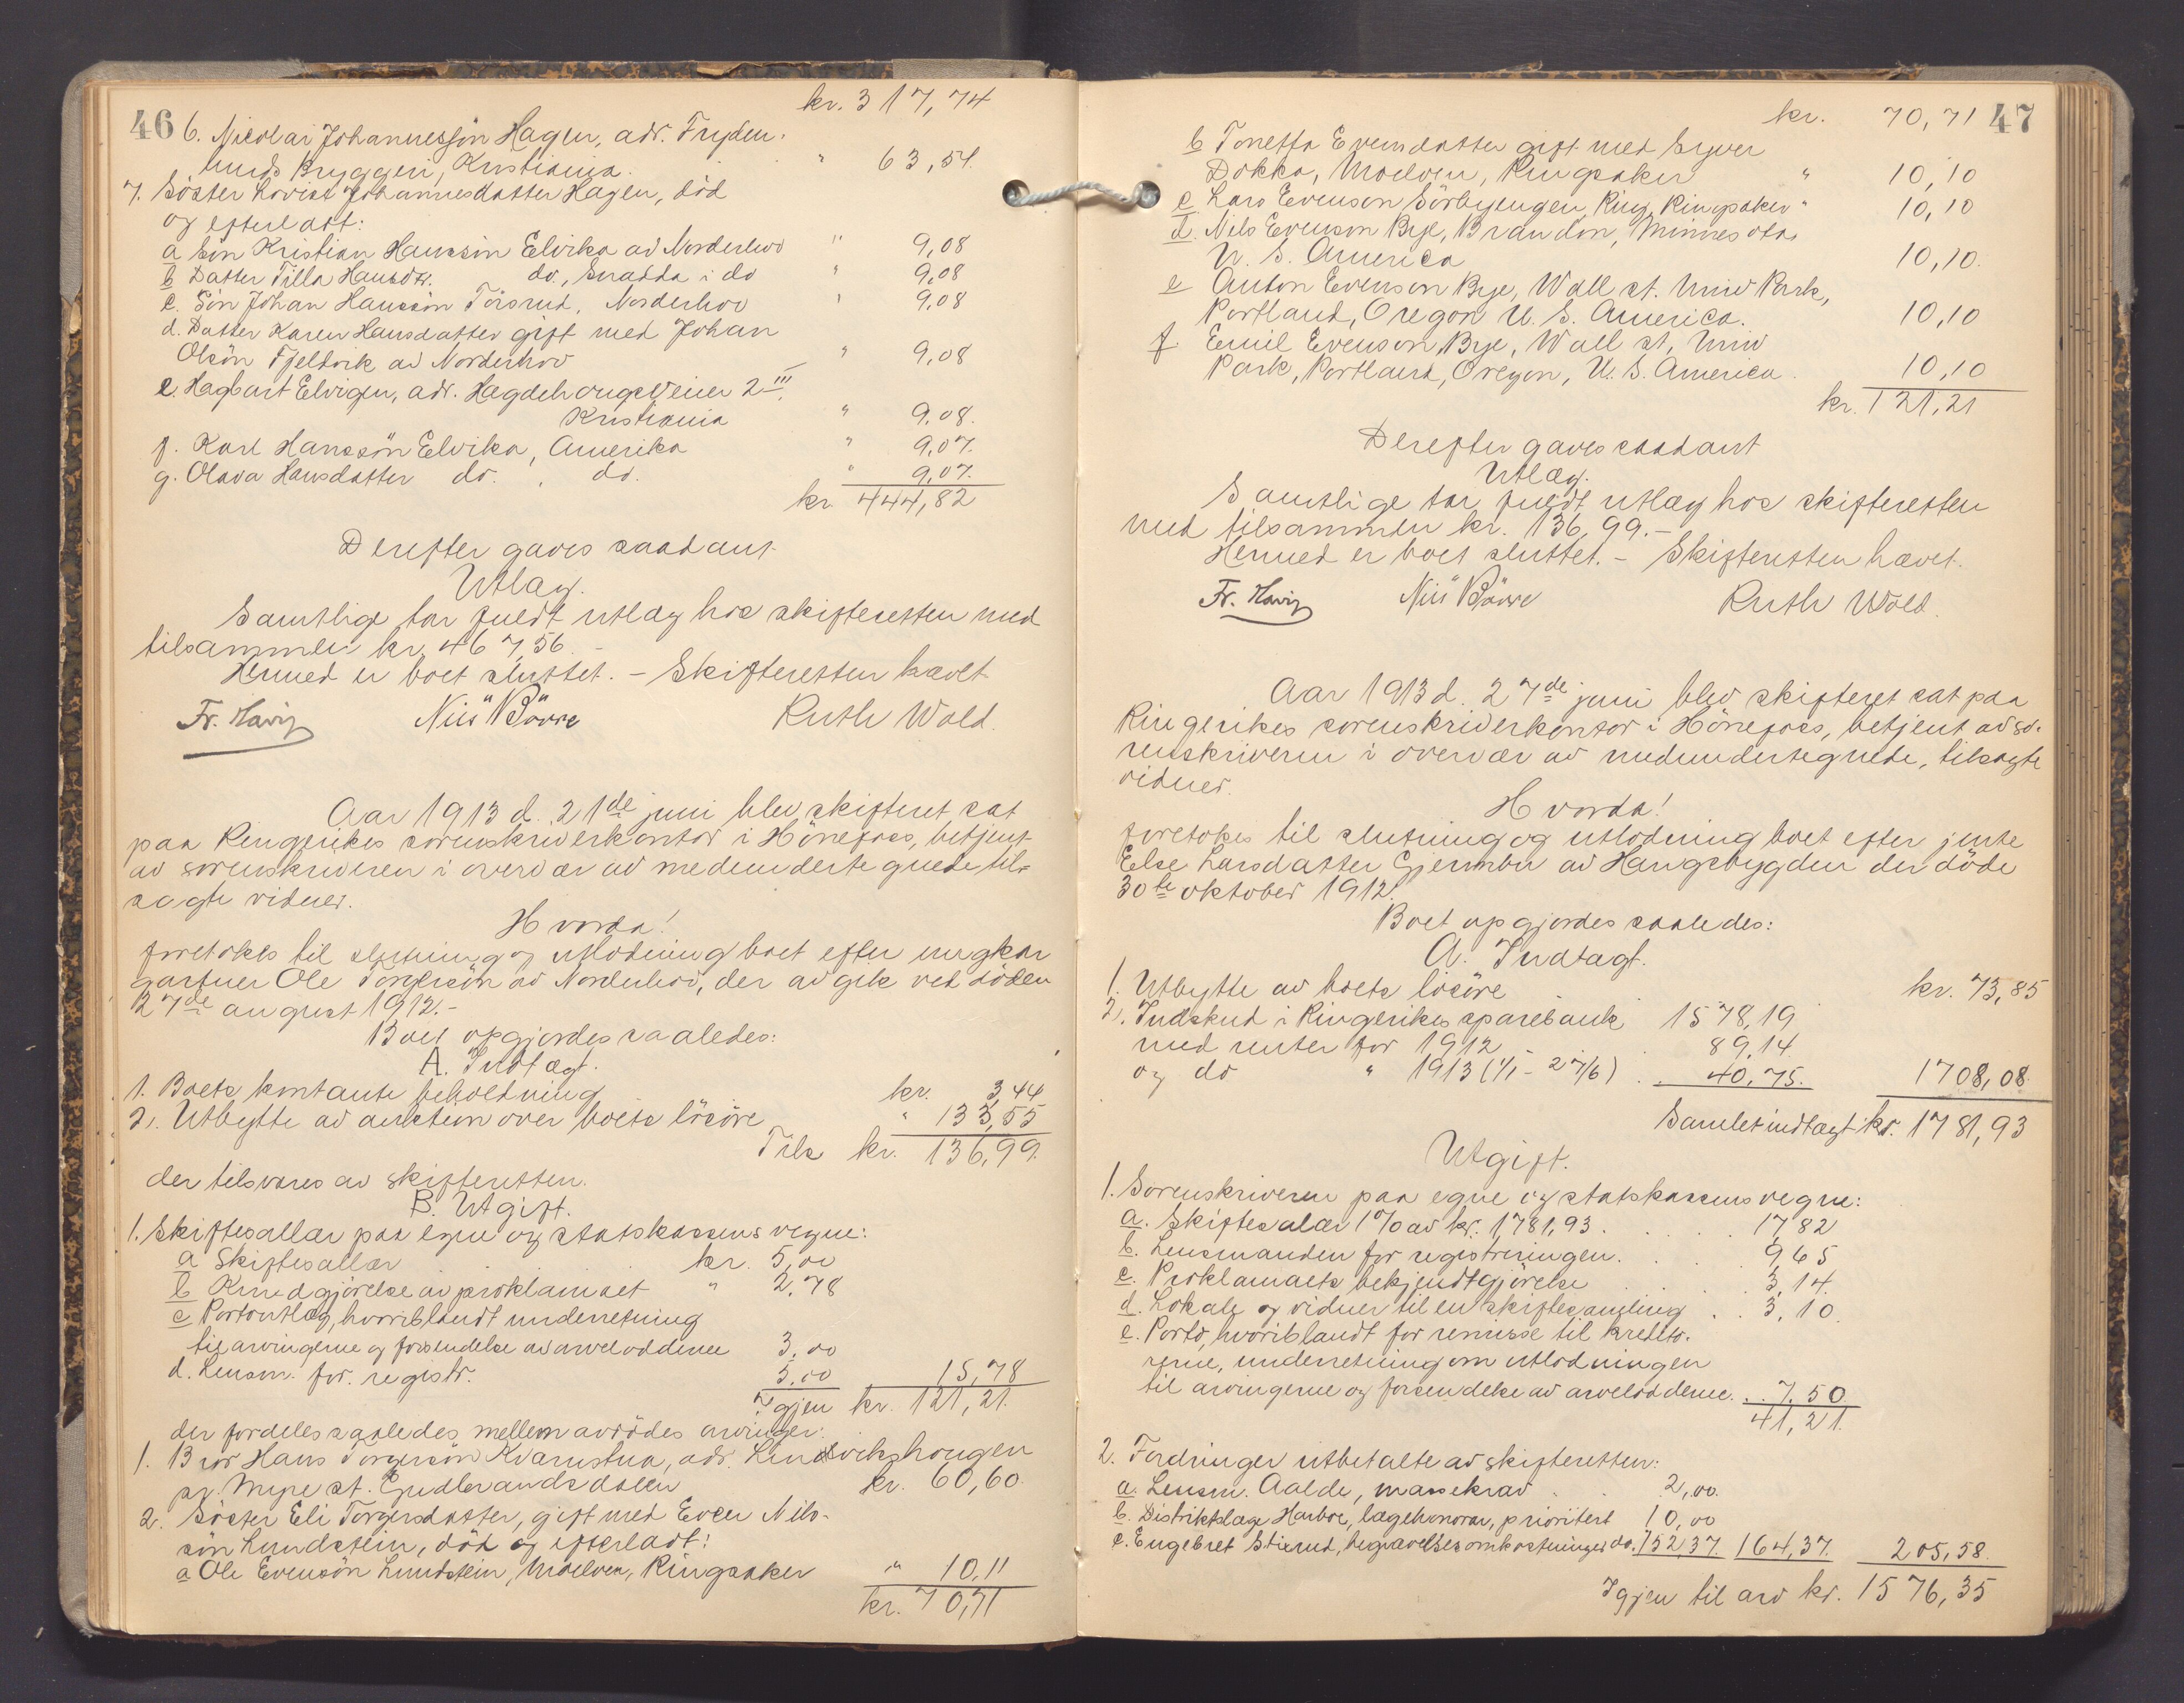 46
kr. 317,74
6. Nicolai Johannessøn Hagen, adr. Fryden-
lunds Bryggeri, Kristiania. " 63,54
7. Söster Lovise Johannesdatter Hagen, död
og efterladt:
a Sön Kristian Hanssön Elvika av Norderhov " 9,08
b Datter Tilla Hansdtr. do., Snadda i do " 9,08
c. Sön Johan Hanssön Törsrud, Norderhov " 9,08
d. Datter Karen Hansdatter gift med Johan
Olsön Fjeldvik av Norderhov " 9,08
e. Hagbart Elvigen, adr. Hagdehougsveien 2 III,
Kristiania " 9,08.
f. Karl Hanssön Elvika, Amerika " 9,07.
g. Olava Hansdatter do. , do. " 9,07.
kr 444,82
Derefter gaves saadant
Utlæg.
Samtlige tar fuldt utlæg hos skifteretten med
tilsammen kr. 467,56. –
Hermed er boet sluttet. – Skifteretten hævet
Fr. Ruth Wold.
Aar 1913 d. 21de juni blev skifteret sat
paa Ringerikes sorenskriverkontor i Hönefoss, betjent
av sorenskriveren i overvær av medundertegnede til-
sagte vidner.
Hvorda!
foretokes til slutning og utlodning boet efter ungkar
gartner Ole Torgersön av Norderhov, der avgik ved döden
27de august 1912. –
Boet opgjordes saaledes:
A. Indtægt.
1. Boets kontante beholdning kr. 3,44
2. Utbytte av auktion over boets lösöre " 133,55
Tils kr. 136,99.
der tilsvares av skifteretten.
B. Utgift.
1. Skiftesallær paa egne og statskassens vegne:
a Skiftesallær kr. 5,00
b Kundgjörelse av proklamaet " 2,78
c Portoutlæg, hvoriblandt underretning
til arvingerne og forsendelse av arveloddene 3,00
d. Lensm. for registr. 5,00 15,78
Igjen kr. 121,21.
der fordeles saaledes mellem avdödes arvinger:
1. Bror Hans Torgersön Kvarnstua, adr. Lindvikshougen
pr. Myre st. Gudbrandsdalen kr. 60,60
2. Söster Eli Torgersdatter, gift med Even Nils-
sön Lundstein, död og efterladt:
a Ole Evensön Lundstein, Moelven, Ringsaker " 10,11
kr. 70,71
47
kr. 70,71
b Tonetta Evensdatter gift med Syver
Dokka, Moelven, Ringsaker " 10,10
c. Lars Evenson Sörbyengen, Ring, Ringsaker " 10,10
d. Nils Evenson Bye, Brandon, Minnesota,
U. S. America 10,10.
e Anton Evenson Bye, Wall st. Univ Park,
Portland, Oregon U. S. America. 10,10
f. Emil Evenson, Bye, Wall st, Univ
Park, Portland, Oregon, U. S. America. 10,10
kr. 121,21
Derefter gaves saadant
Utlæg.
Samtlige tar fuldt utlæg hos skifteretten
med tilsammen kr. 136,99. –
Hermed er boet sluttet. – Skifteretten hævet.
Fr. Ruth Wold.
Aar 1913 d. 27de juni blev skifteret sat paa
Ringerikes sorenskriverkontor i Hönefoss, betjent av so-
renskriveren i overvær av medundertegnede, tilsagte
vidner.
Hvorda!
foretokes til slutning og utlodning boet efter jente
Else Larsdatter Gjermbu av Haugsbygden der döde
30te oktober 1912.
Boet opgjordes saaledes:
A. Indtægt.
1. Utbytte av boets lösöre kr. 73,85
2. Indskud i Ringerikes sparebank 1578,19
med renter for 1912 89,14
og do " 1913 (1/1 - 27/6) . 40,75. 1708,08.
Samlet indtægt kr. 1781,93
Utgift.
1. Sorenskriveren paa egne og statskassens vegne:
a. Skiftesalær 1% av kr. 1781,93. 17,82
b. Lensmanden for registreringen. 9,65
c. Proklamaets bekjendtgjörelse 3,14.
d. Lokale og vidner til en skiftesamling . . 3,10.
e. Porto, hvoriblandt for remisse til kredito-
rerne, underretning om utlodningen
til arvingerne og forsendelse av arveloddene. . . 7,50
41,21.
2. Fordringer utbetalte av skifteretten:
a. Lensm. Aalde, massekrav 2,00.
b. Distriktslæge Harboe, lægehonorar, prioritert 10,00
c. Engebret Stixrud, begravelsesomkostninger do. 152,37. 164,37. 205,58.
Igjen til arv kr. 1576,35